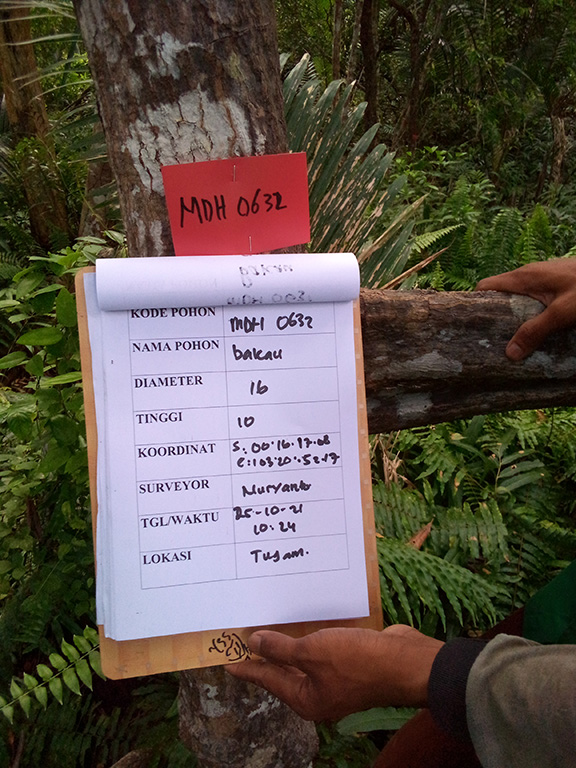 MDH 0632
KODE POHON MDH 0632
NAMA POHON bakau
DIAMETER 16
TINGGI 10
KOORDINAT S: 00°16'17.08
E: 103°20'.52.17
SURVEYOR Muryanto
TGL/WAKTU 25-10-21
10:24
LOKASI Tugam.